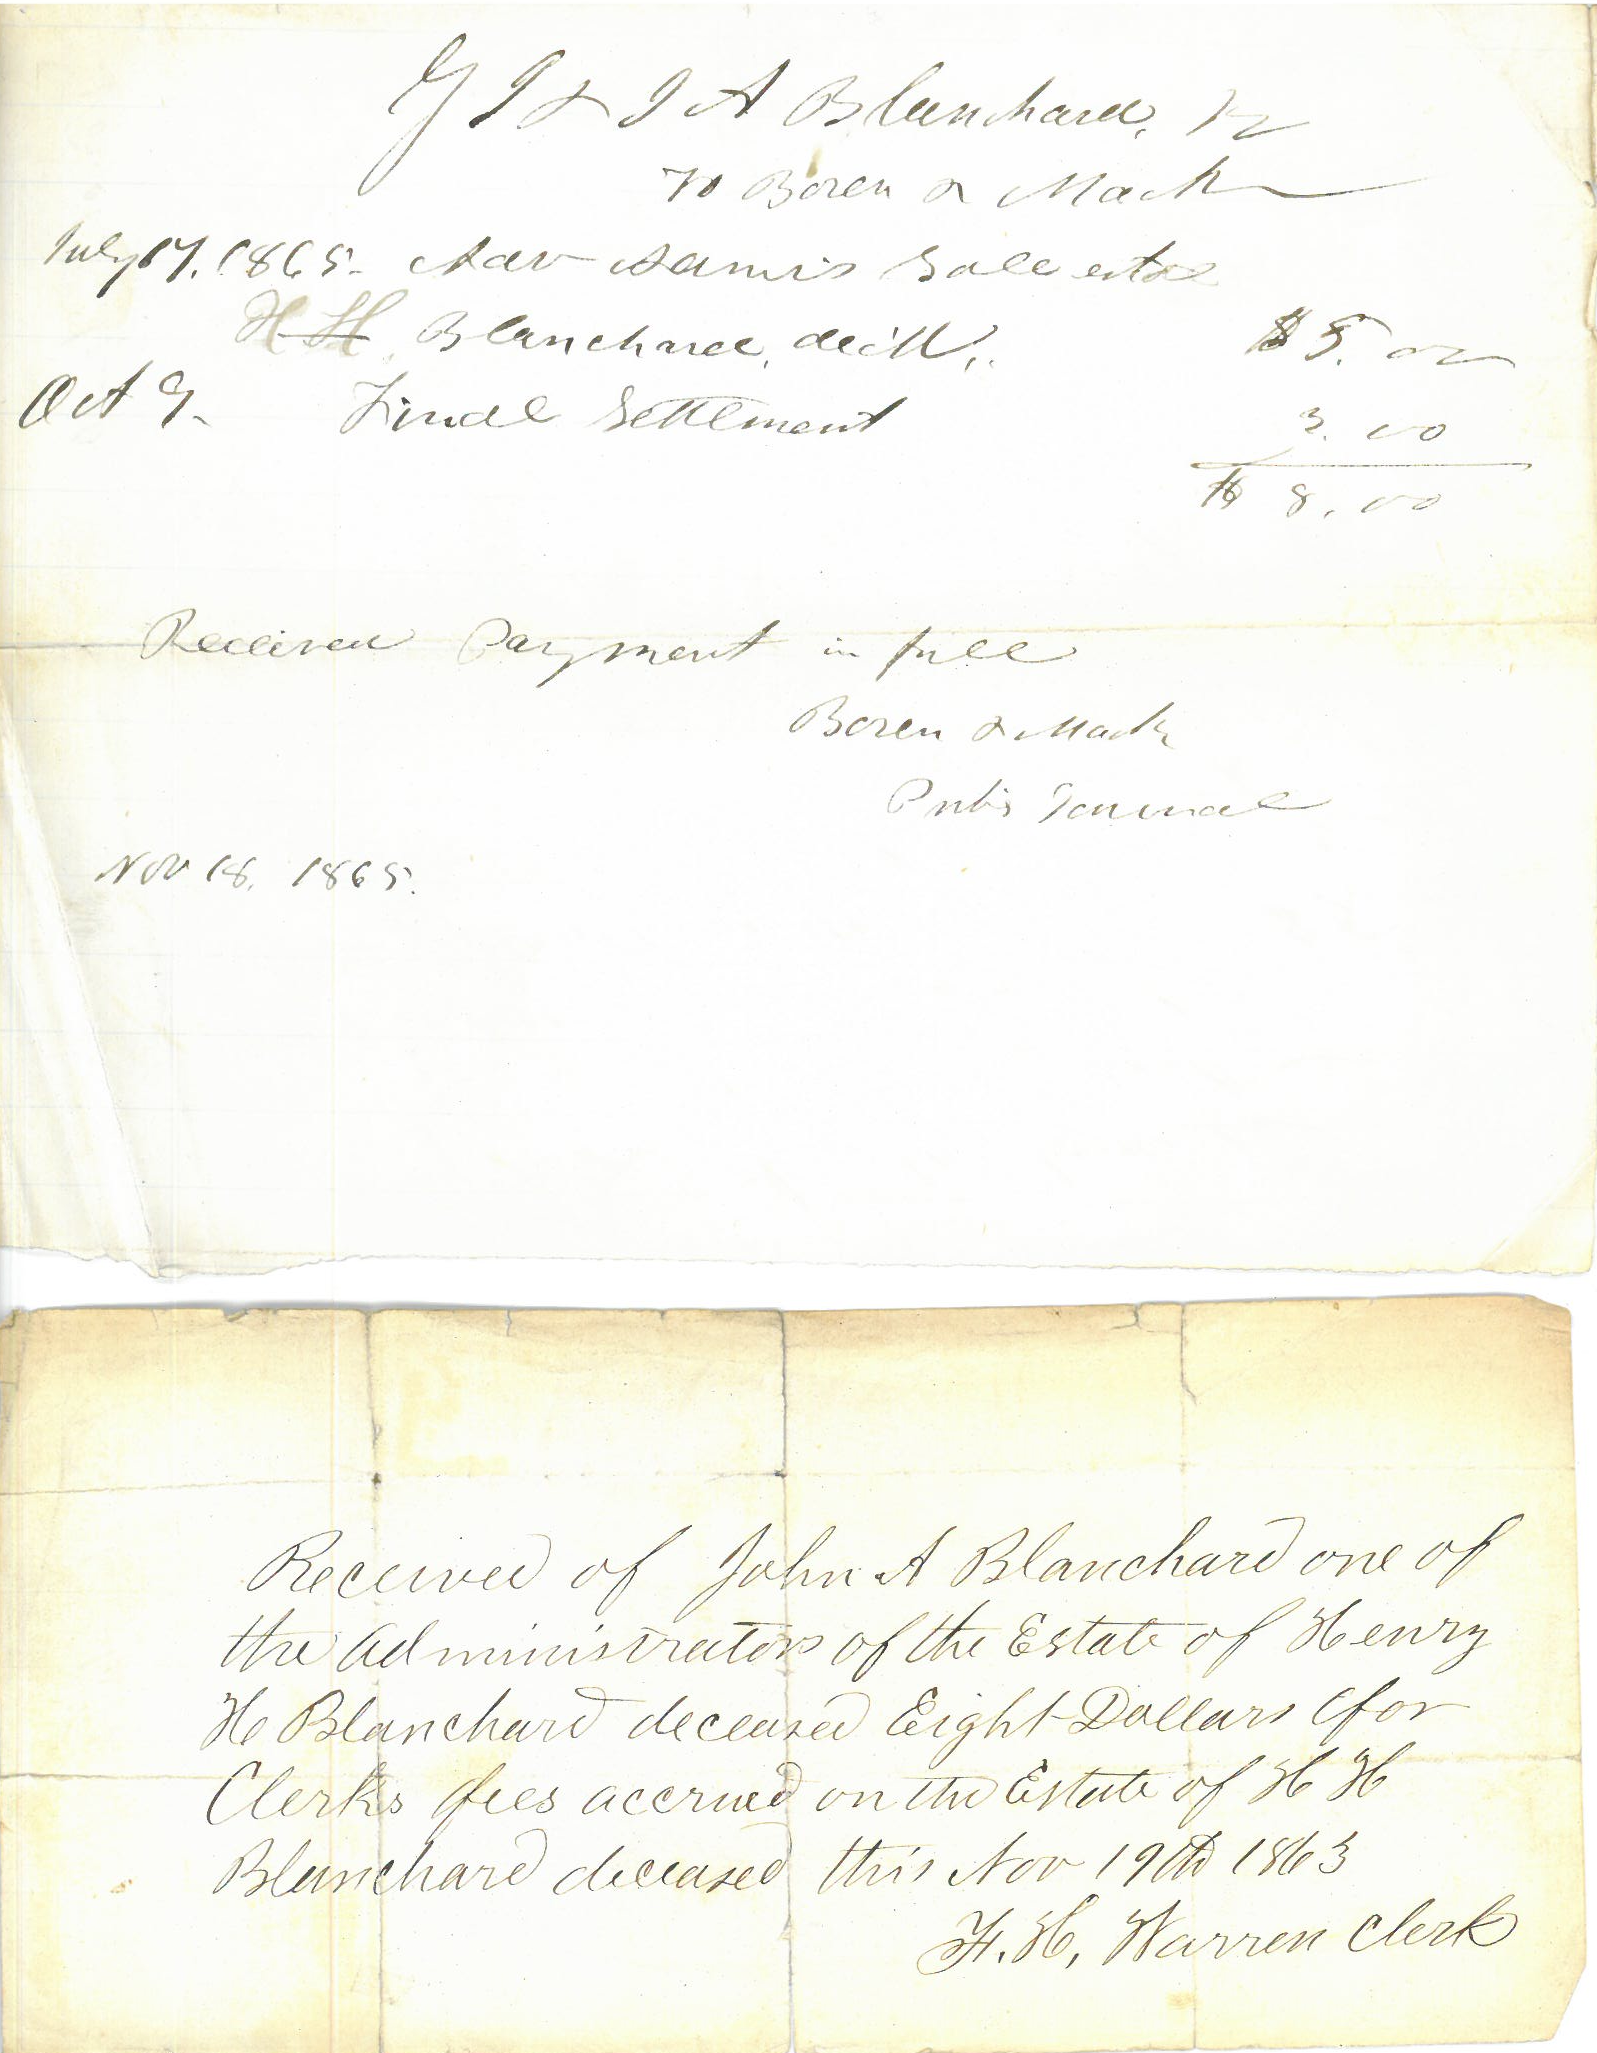 G I & J A Blanchard, Dr
To Boren & Mack
July 17, 1865. Adv Admrs Sale est of
H H Blanchard, dec'd,. $5.00
Oct 9. Final Settlement 3.00
$8.00
Received Payment in full
Boren & Mack
Pubs Journal
Nov 18, 1865.
Received of John A Blanchard one of
the Administrators of the Estate of Henry
H Blanchard deceased Eight Dollars for
Clerks fees accrued on the Estate of H H
Blanchard deceased this Nov 19th 1863
F. H, Warren Clerk